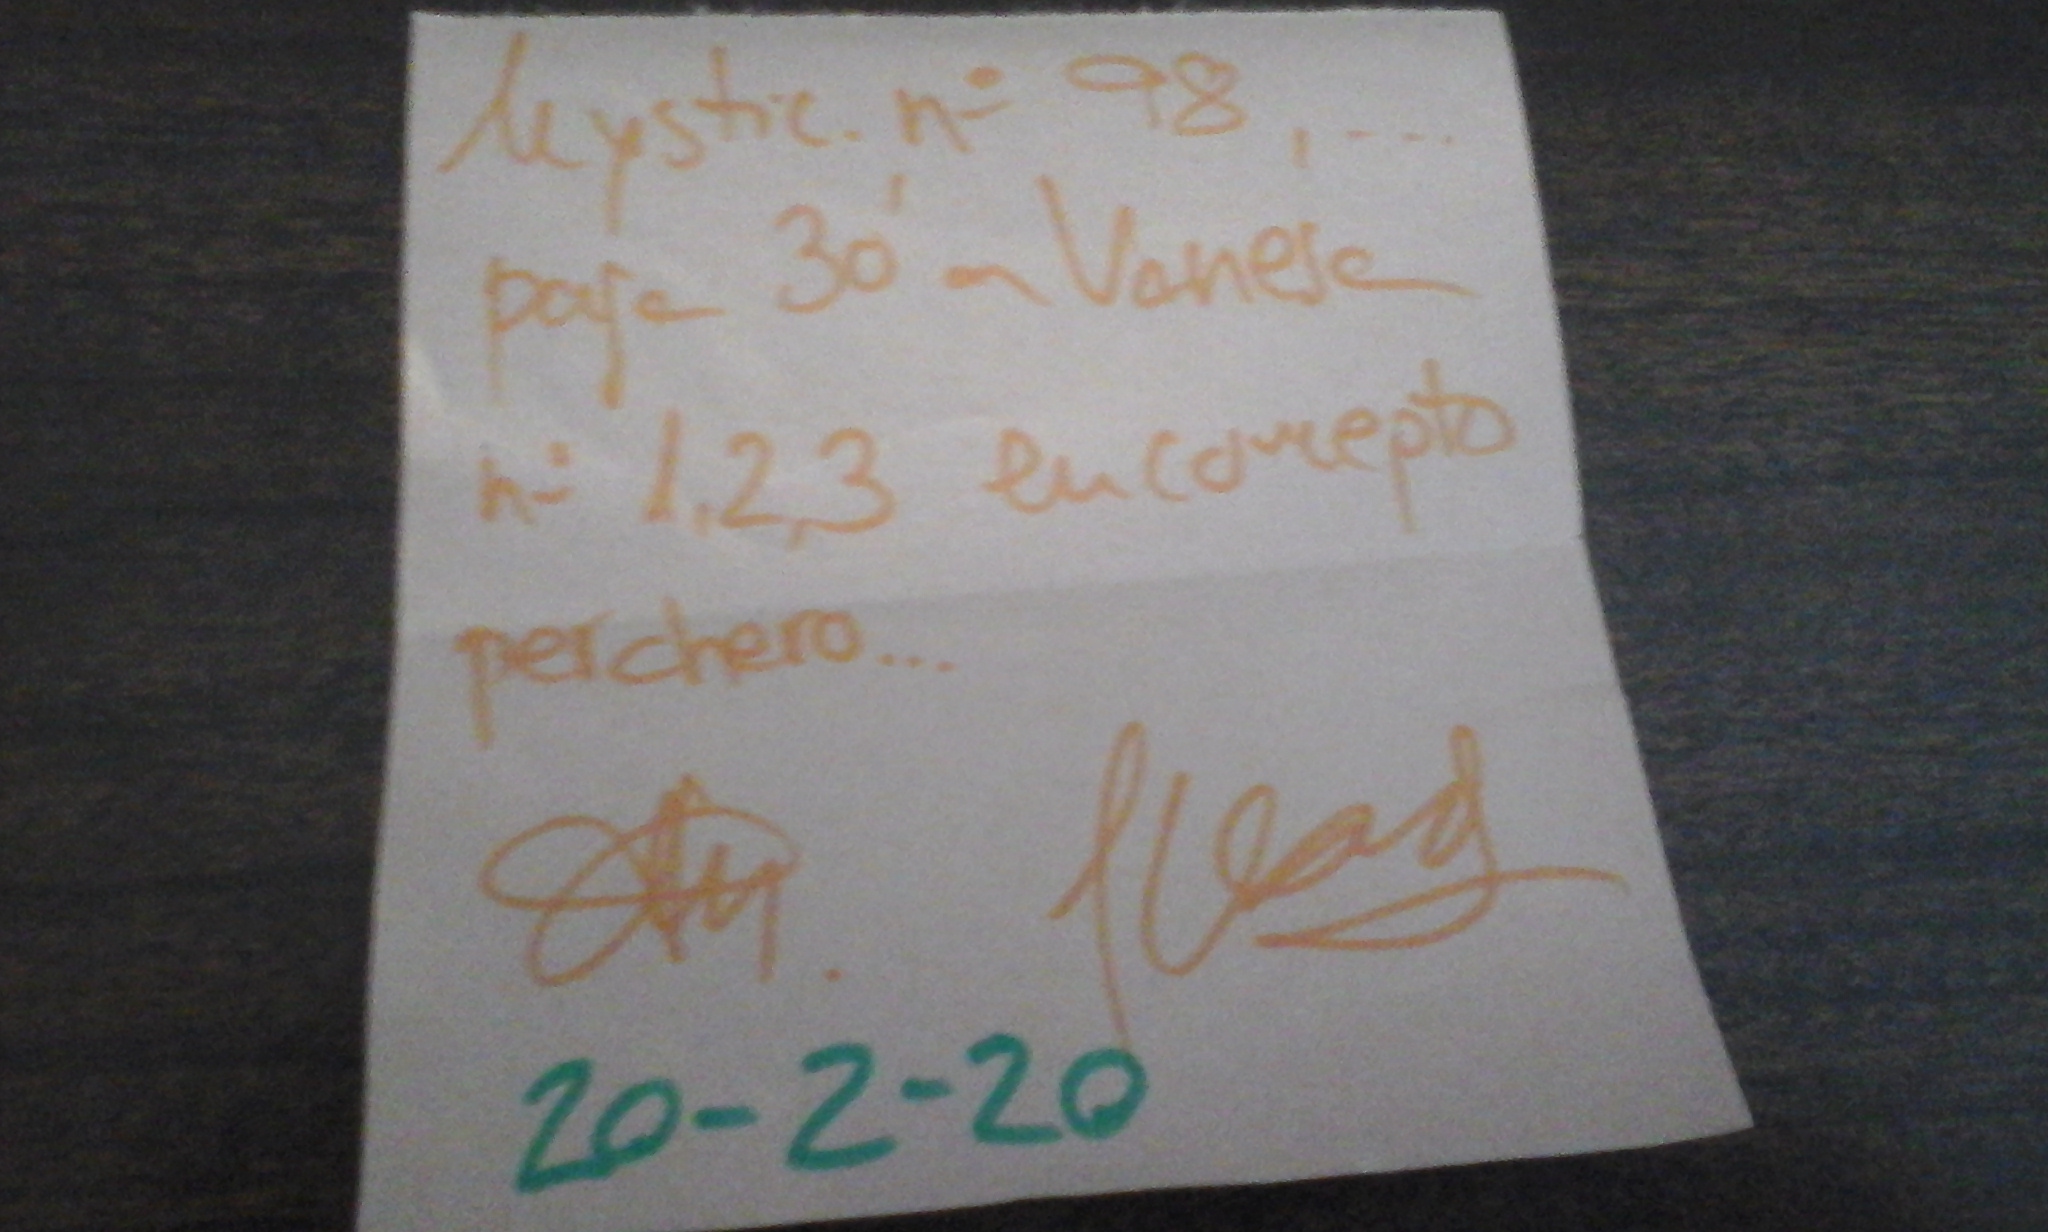 Mystic. nº 98, ....
paga 30' a Vanesa
nº 1,2,3 en concepto
perchero...
20-2-20